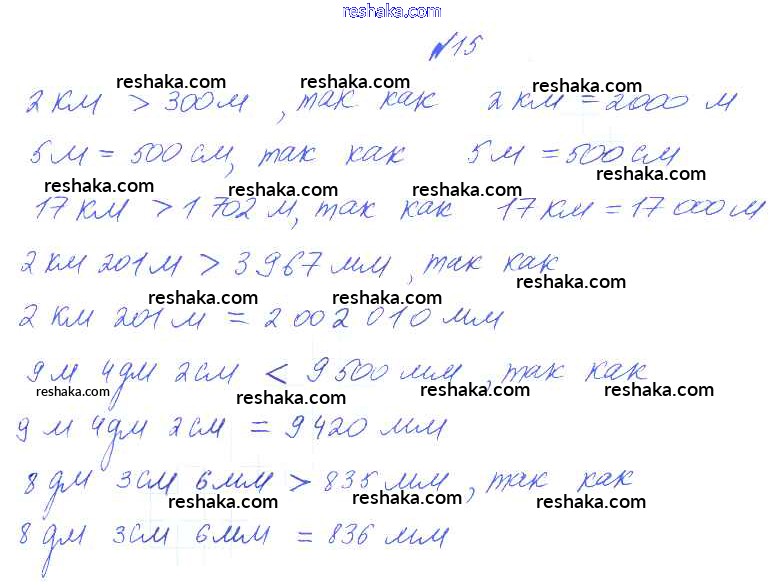 reshaka.com
№15
2 км > 300 м, так как 2 км = 2000 м
reshaka.com reshaka.com reshaka.com
5 м = 500 см, так как 5 м = 500 см
reshaka.com reshaka.com reshaka.com
17 км > 1 702 м, так как 17 км = 17 000 м
2 км 201 м > 3 967 мм, так как
reshaka.com reshaka.com reshaka.com
2 км 201 м = 2 002 010 мм
9 м 4 дм 2 см < 9 500 мм, так как
reshaka.com reshaka.com reshaka.com reshaka.com
9 м 4 дм 2 см = 9 420 мм
8 дм 3 см 6 мм > 835 мм, так как
reshaka.com reshaka.com reshaka.com
8 дм 3 см 6 мм = 836 мм